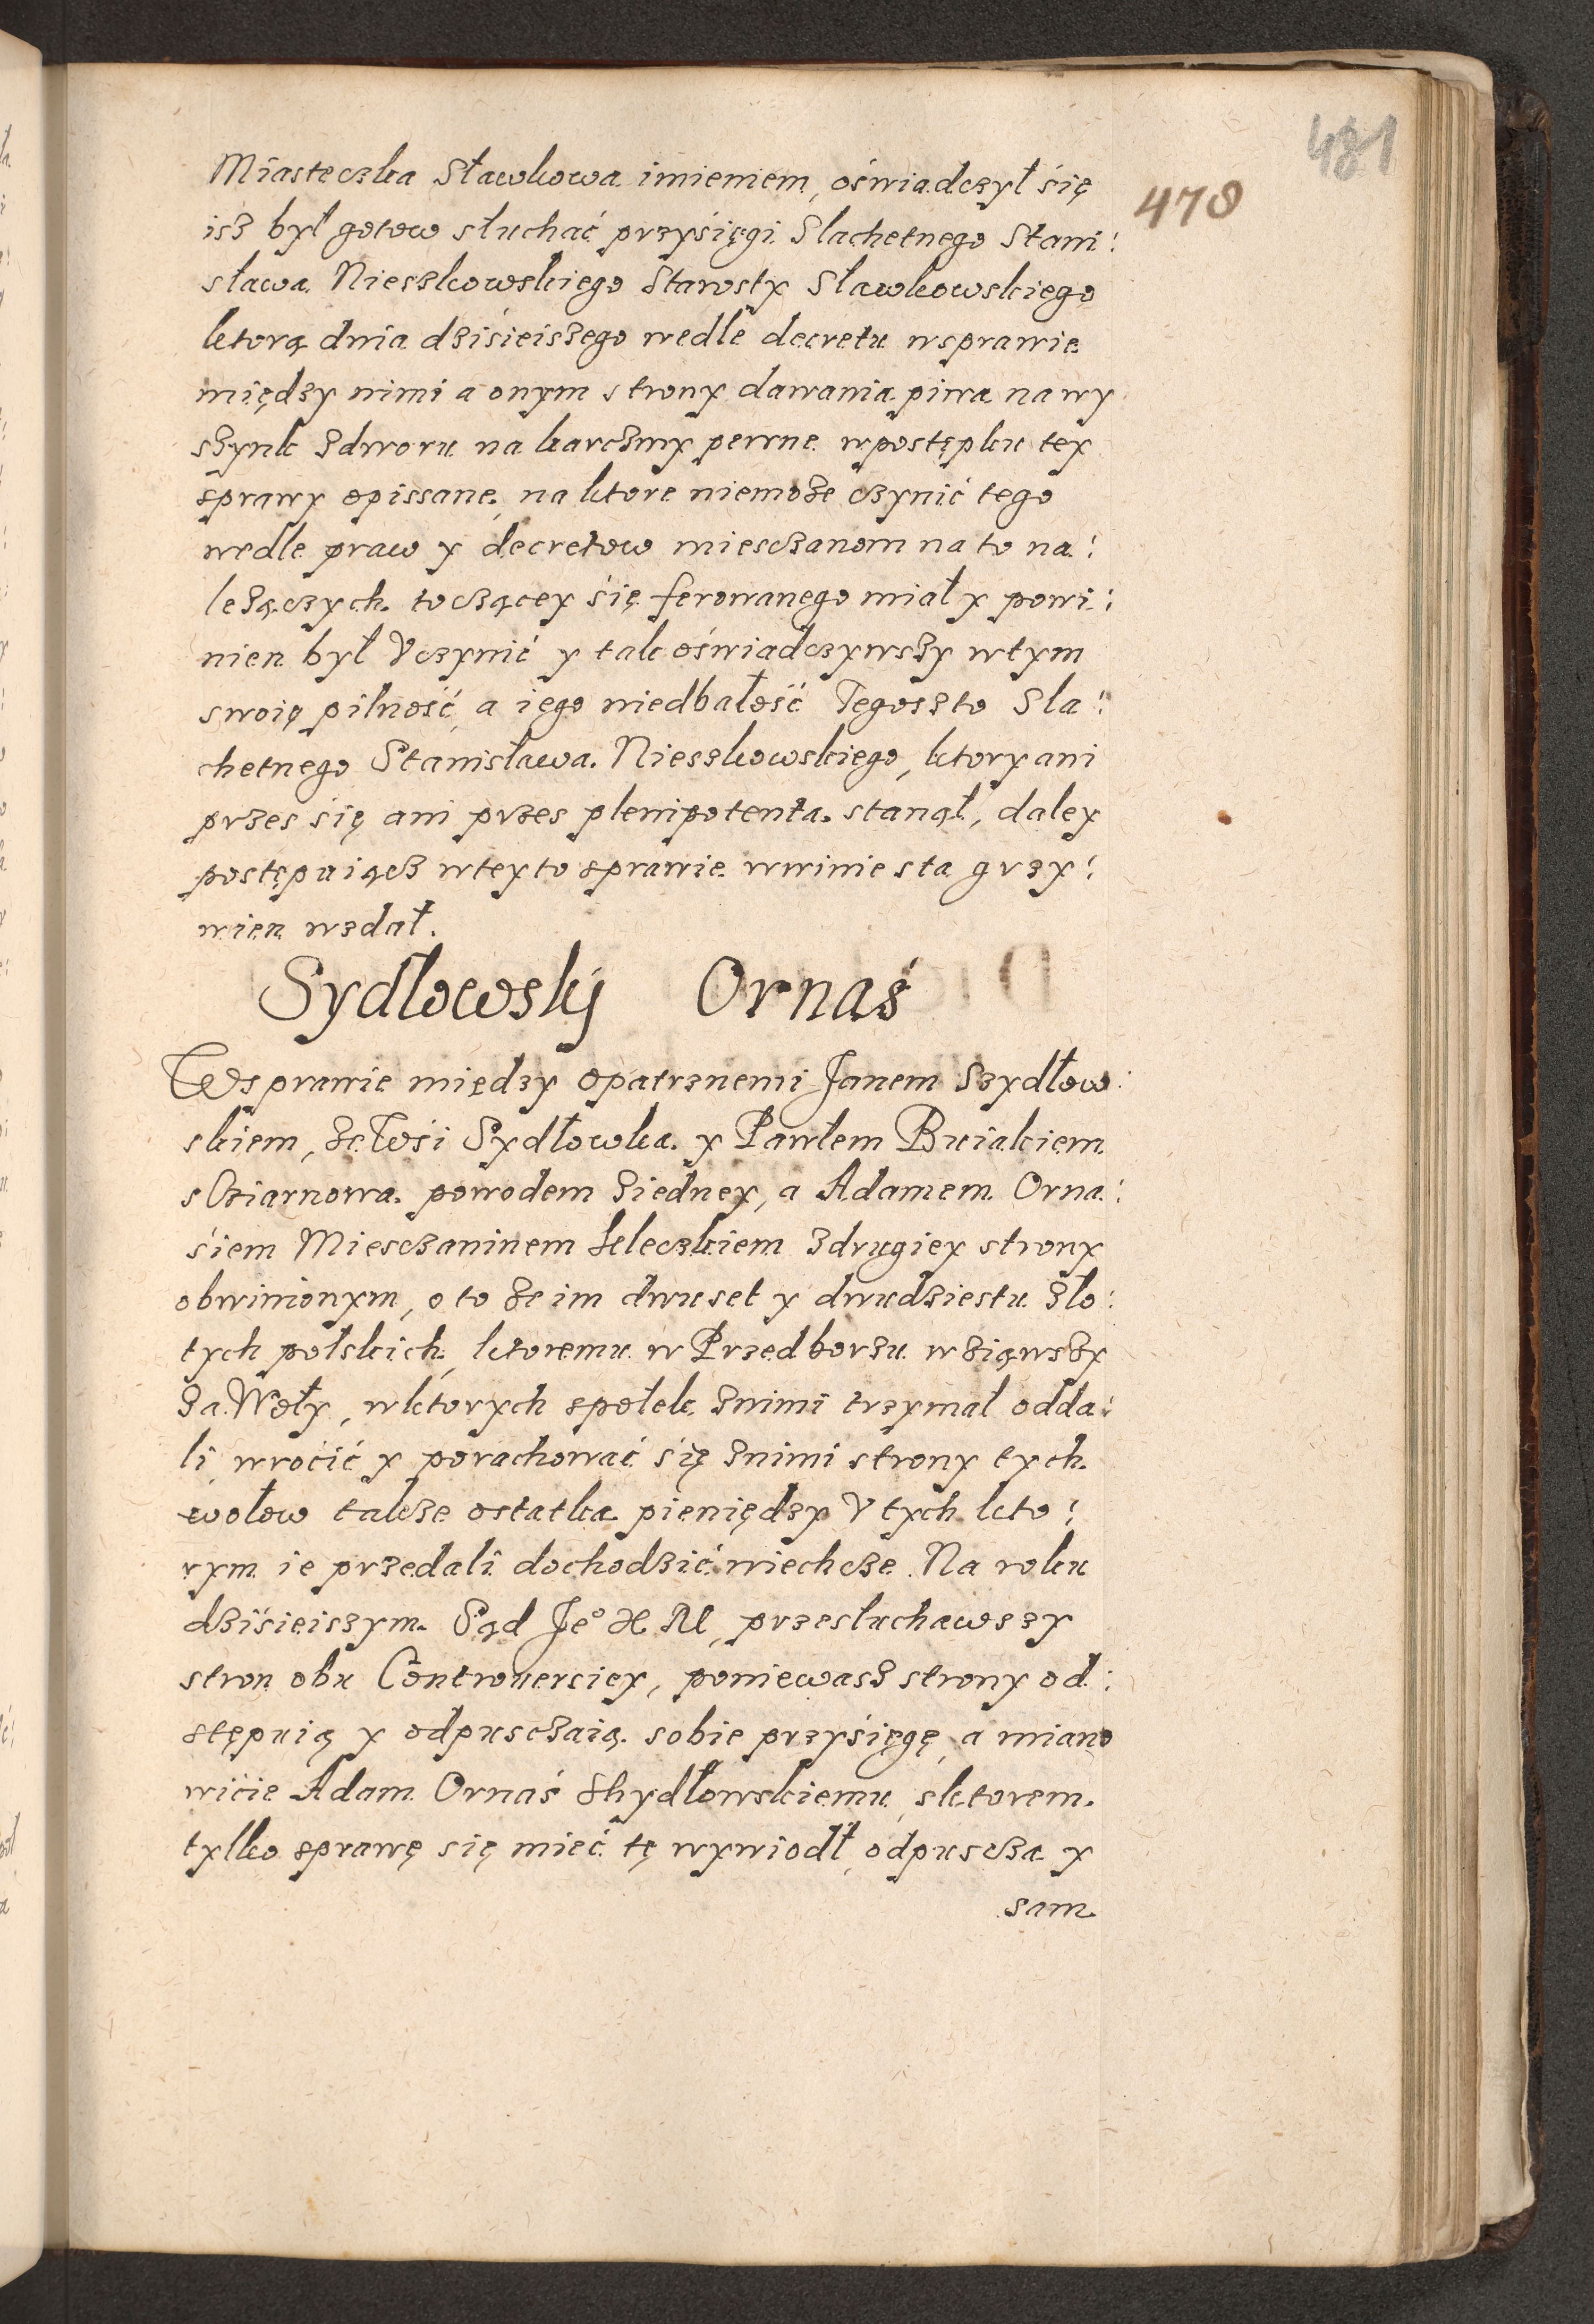 481
478
Miasteczka Sławkowa imieniem, oświadczył się
isz był gotow słuchać przysięgi Slachetnego Stani:
sława Nieszkowskiego Starosty Sławkowskiego
ktorą dnia dzisieiszego wedle decretu wsprawie
między nimi a onym strony dawania piwa na wy
szynk zdworu na karczmy pewne wpostępku tey
sprawy opissane, na ktore niemoze czynić tego
wedle praw y decretow miesczanom na to na:
lezączych toczącey się ferowanego miał y powi:
nien był Vczynić y tak oświadczywszy wtym
swoię pilność, a iego niedbałość Tegoszto Sla:
chetnego Stanisława Nieszkowskiego, ktory ani
przes się ani przes plenipotenta stanął, daley
postępuiącz wteyto sprawie wwinie sta grzy:
wien wzdał.
Sydlowskj Ornaś
Wsprawie między opatrznemi Janem Szydłow:
skiem, ze Wsi Sydłowka y Pawłem Buiakiem
s Cziarnowa powodem ziedney, a Adamem Orna:
śiem Miesczaninem Zeleczkiem zdrugiey strony
obwinionym, o to ze im dwuset y dwudziestu zło:
tych polskich, ktoremu w Przedborzu wziąwszy
za Woły, wktorych społek znimi trzymał odda:
li, wrocić y porachować się znimi strony tych
wołow takze ostatka pieniędzy V tych kto:
rym ie przedali dochodzić niechcze. Na roku
dzisieiszym Sąd Jeº X M, przesłuchawszy
stron obu Controuersiey, poniewasz strony od:
stępuią y odpusczaią sobie przysięgę, a miano
wicie Adam Ornaś Shydłowskiemu, sktorem
tylko sprawę się mieć tę wywiodł, odpuscza y
sam